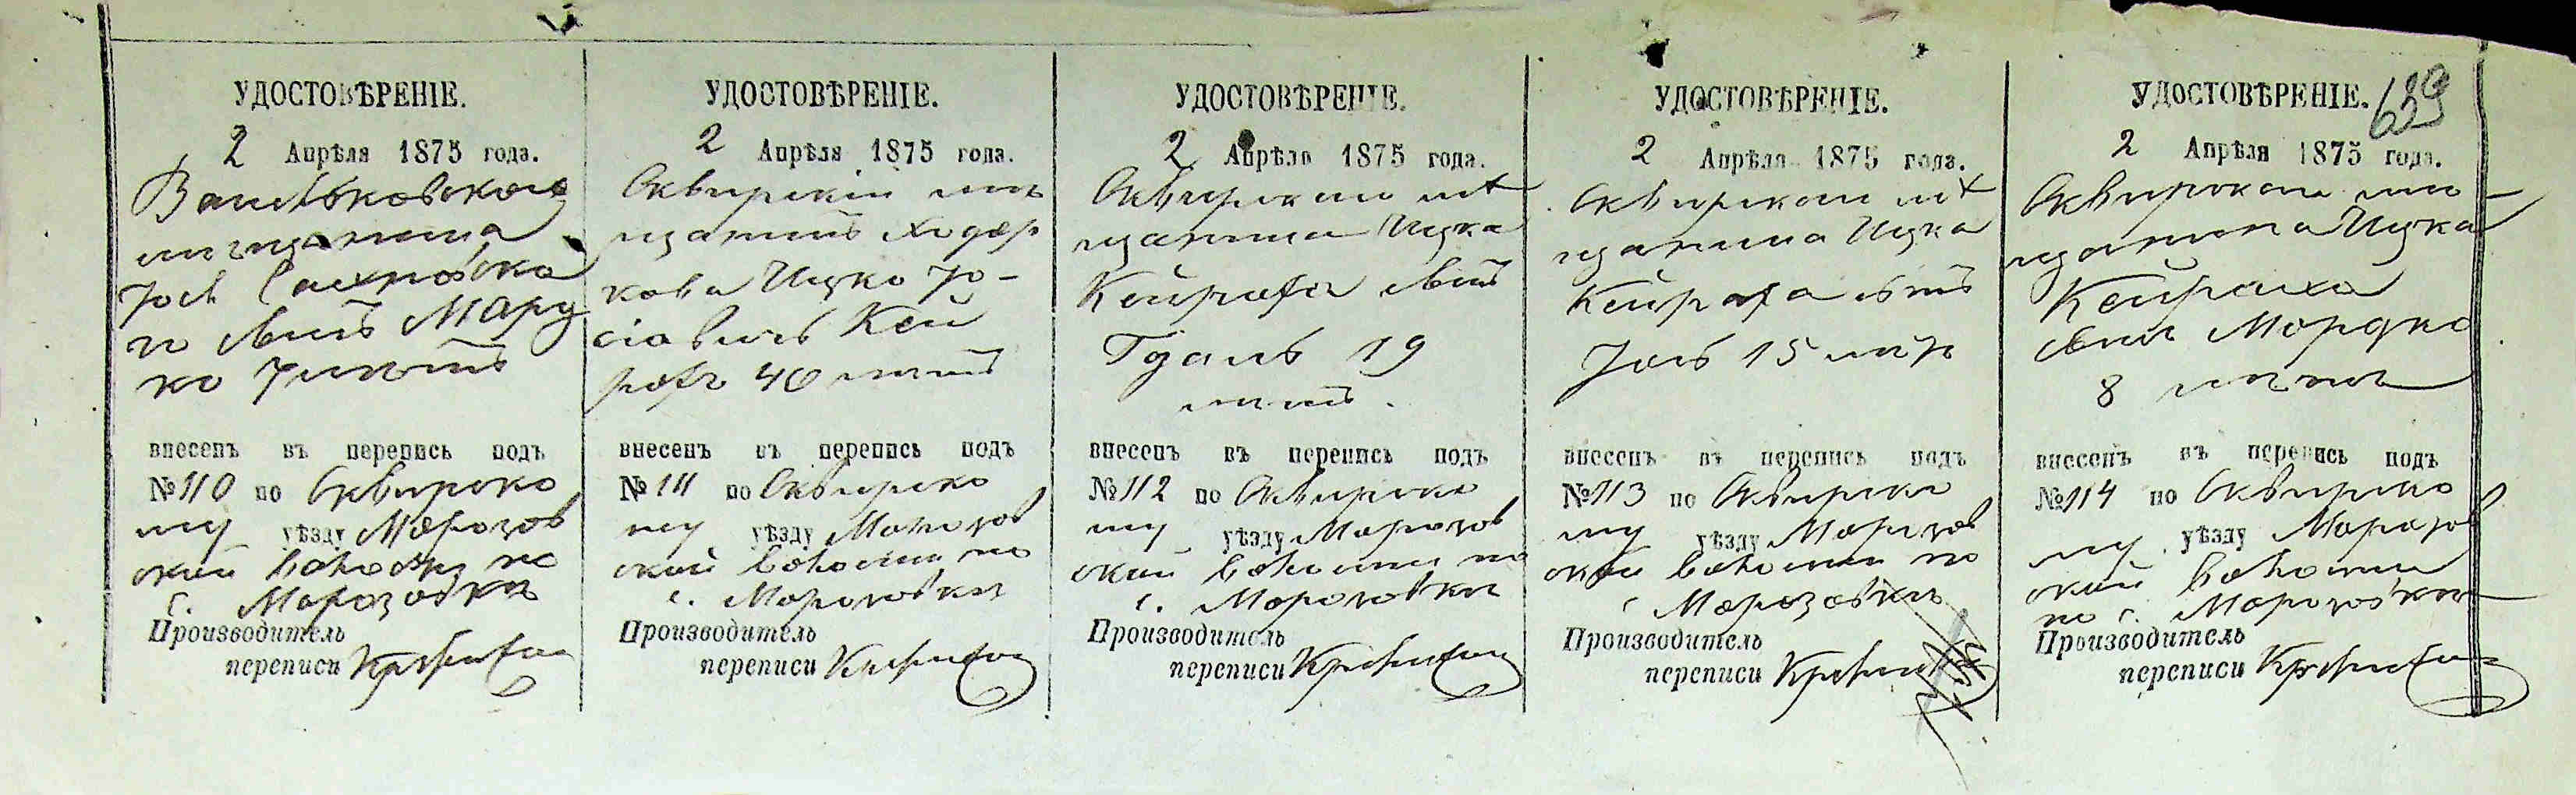 УДОСТОВѢРЕНІЕ.
2 Апрѣля 1875 года.
Васильковского
мѣщанина
сынъ Мар
ко 7 лѣтъ
внесенъ въ перепись подъ
№ 110 по Сквирско
му уѣзду Морозов
ской волости по
с. Морозовкѣ
Производитель
переписи
УДОСТОВѢРЕНІЕ.
2 Апрѣля 1875 года.
Сквирскій мѣ
щанинъ Ходор
кова Ицко Іо-
сіовичъ Кей
рахъ 46 лѣтъ
внесенъ въ перепись подъ
№ 111 по Сквирско
му уѣзду Морозов
ской волости по
с. Морозовкѣ
Производитель
переписи
УДОСТОВѢРЕНІЕ.
2 Апрѣля 1875 года.
Сквирскаго мѣ
щанина Ицка
Кейраха сынъ
Гдаль 19
лѣтъ.
внесенъ въ перепись подъ
№ 112 по Сквирско
му уѣзду Морозов
ской волости по
с. Морозовкѣ
Производитель
переписи
УДОСТОВѢРЕНІЕ.
2 Апрѣля 1875 года.
Сквирскаго мѣ
щанина Ицка
Кейраха сынъ
15 лѣтъ
внесенъ въ перепись подъ
№ 113 по Сквирско
му уѣзду Морозов
ской волости по
с. Морозовкѣ
Производитель
переписи
639
УДОСТОВѢРЕНІЕ.
2 Апрѣля 1875 года.
Сквирскаго мѣ
щанина Ицка
Кейраха
сынъ Мордко
8 лѣтъ
внесенъ въ перепись подъ
№ 114 по Сквирско
му уѣзду Морозов
ской волости
по с. Морозовкѣ
Производитель
переписи